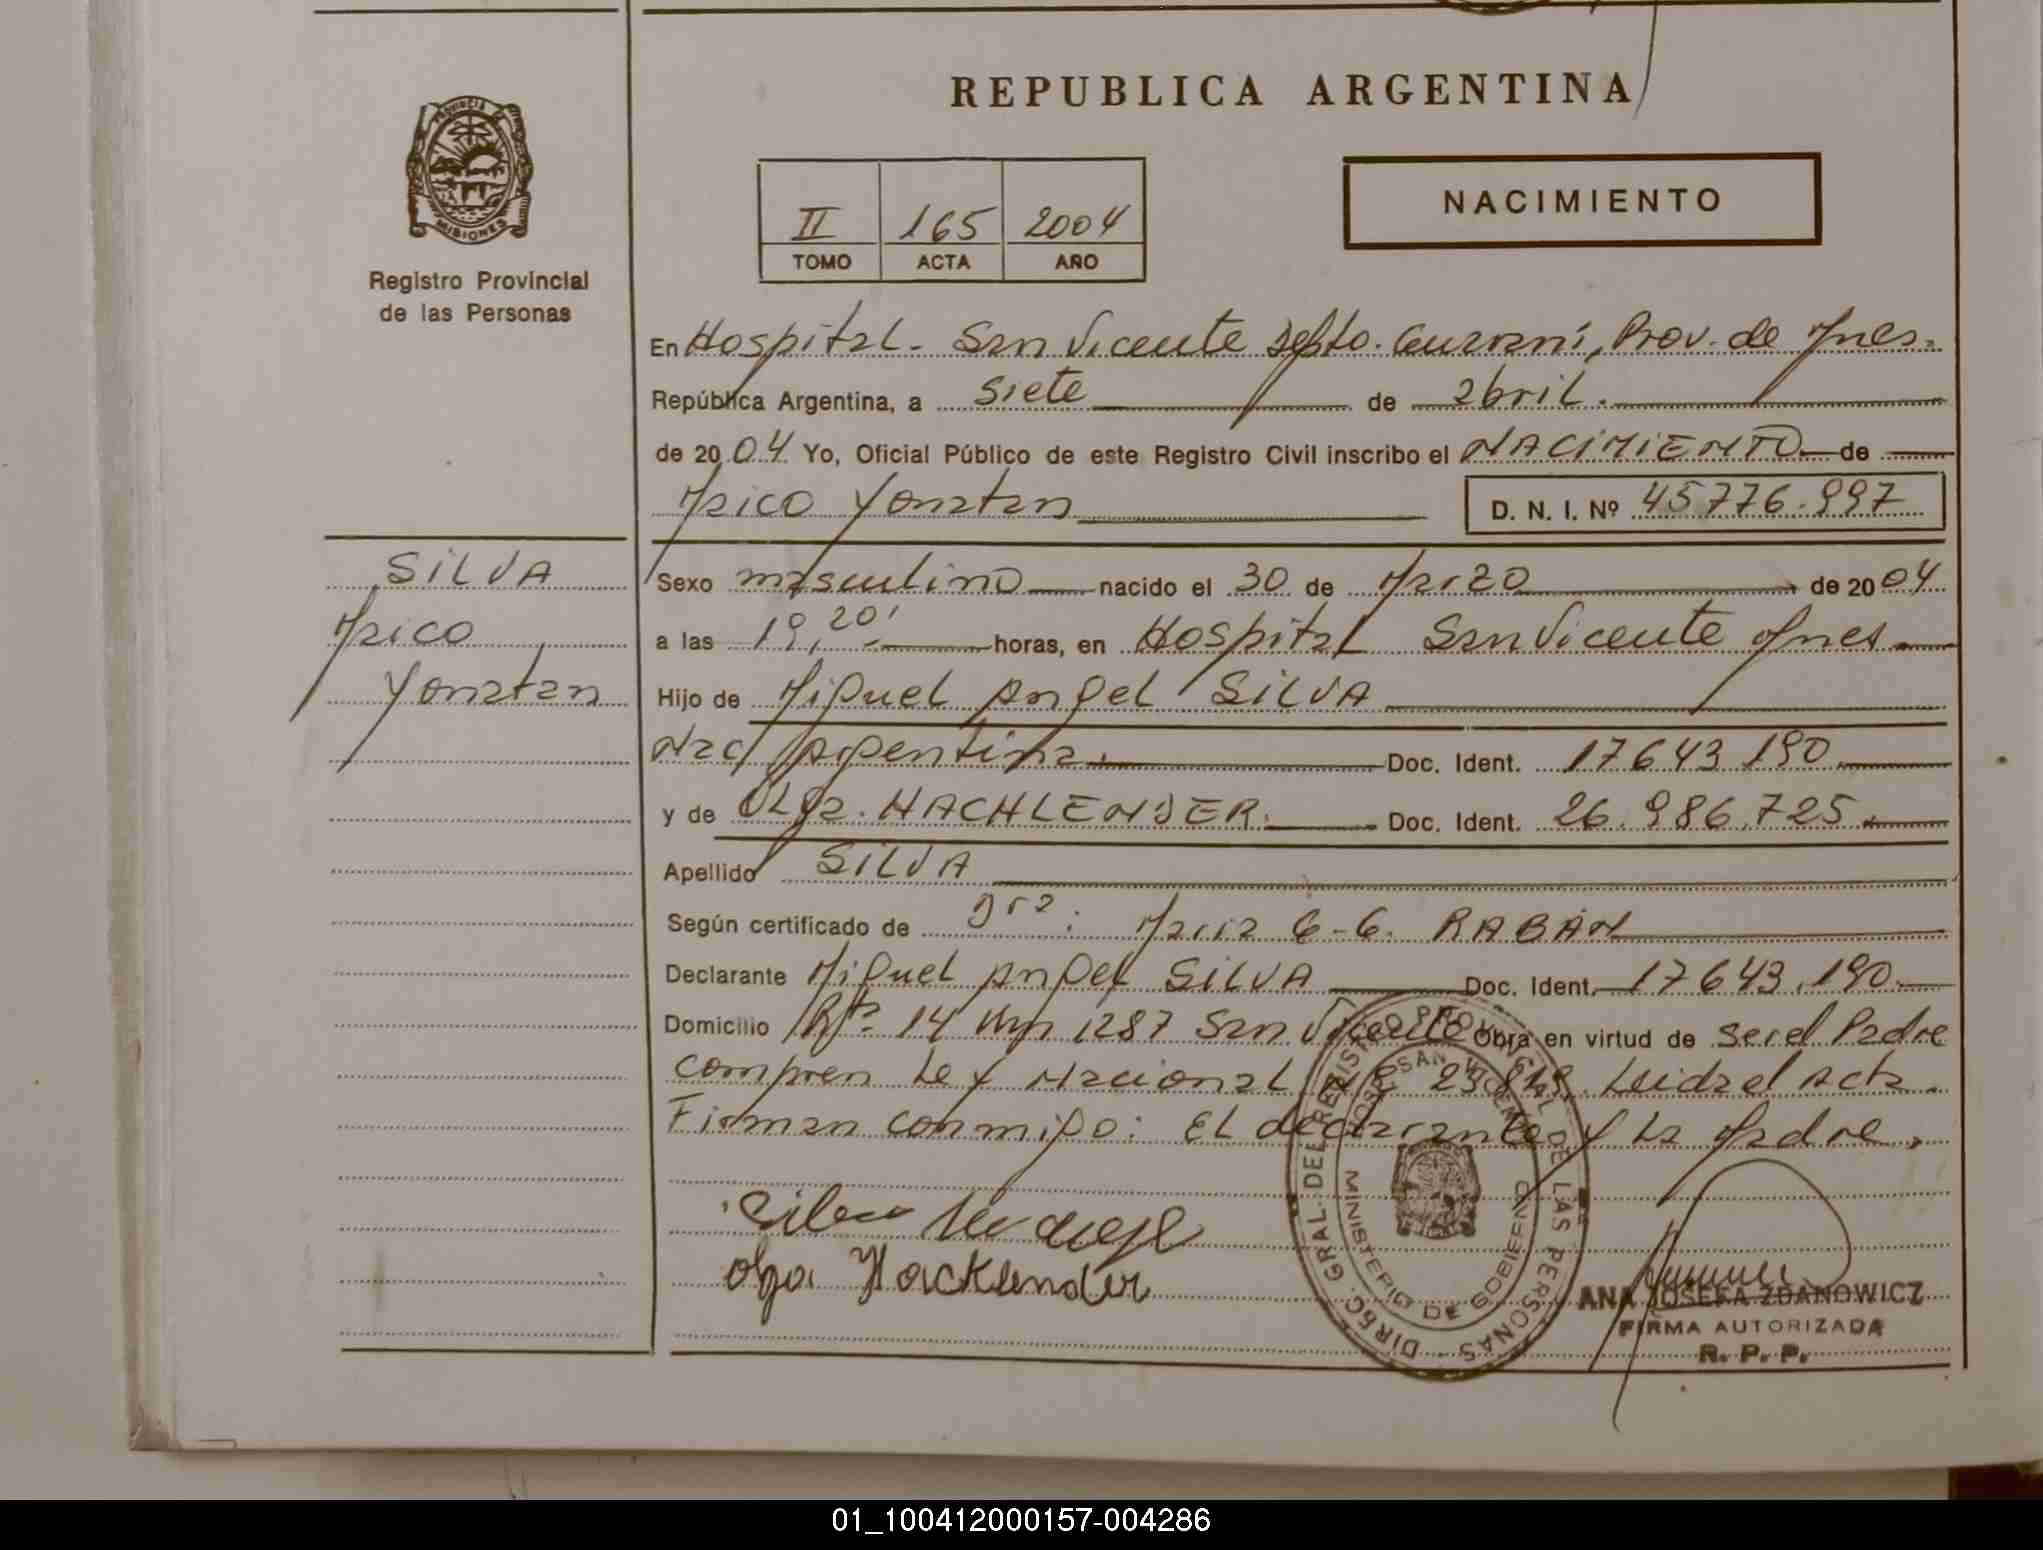 REPUBLICA ARGENTINA
PROVINCIA DE
MISIONES
Registro Provincial
de las Personas
II 165 2004
TOMO ACTA AÑO
NACIMIENTO
En Hospital - San Vicente Depto. Guaraní, Prov. de Mnes.
República Argentina, a siete de abril.
de 2004 Yo, Oficial Público de este Registro Civil inscribo el NACIMIENTO de
Maico Yonatan
D. N. I. Nº 45776.997
SILVA
Maico
Yonatan
Sexo masculino nacido el 30 de Marzo de 2004
a las 19,20' horas, en Hospital San Vicente Mnes
Hijo de Miguel Angel SILVA
Nac Argentina. Doc. Ident. 17643190
y de Olga HACHLENDER. Doc. Ident. 26.986.725.
Apellido SILVA
Según certificado de Dra: Maria G-G. RABAN
Declarante Miguel Angel SILVA Doc. Ident. 17643.190
Domicilio Rta 14 Km 1287 San Vicente Obra en virtud de ser el Padre
compren Ley Nacional Nº 23.848. Leida el acta.
Firman conmigo: El declarante y La Madre,
Silva
olga Hacklender
DIREC. GRAL. DEL REGISTRO PROVINCIAL DE LAS PERSONAS
SAN VICENTE
MINISTERIO DE GOBIERNO
ANA JOSEFA ZDANOWICZ
FIRMA AUTORIZADA
R. P. P.
01_100412000157-004286